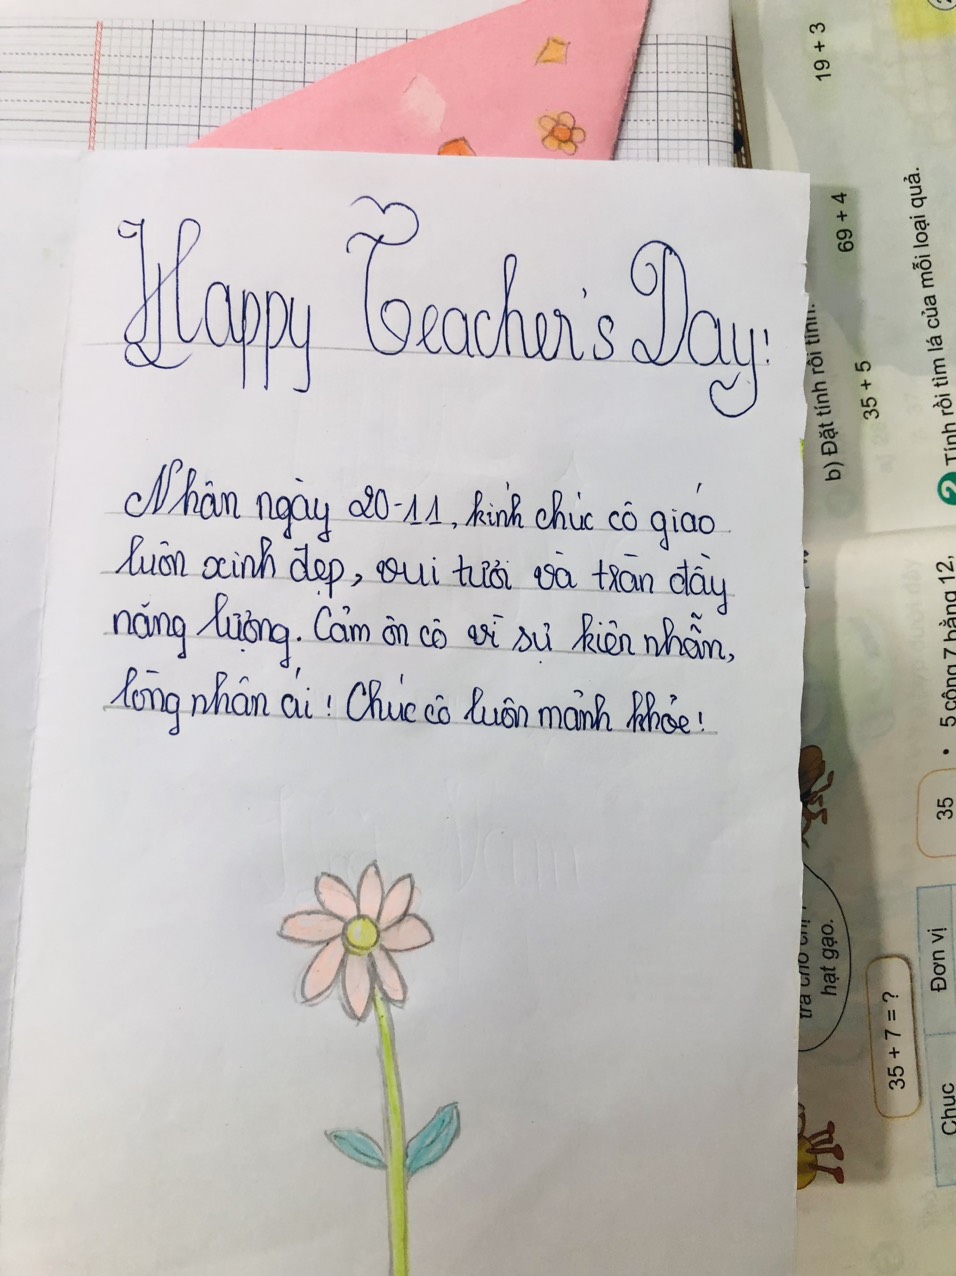 Happy Teacher's Day!
Nhân ngày 20-11, kính chúc cô giáo
luôn xinh đẹp, vui tươi và tràn đầy
năng lượng. Cảm ơn cô vì sự kiên nhẫn,
lòng nhân ái! Chúc cô luôn mảnh khỏe!
19 + 3
69 + 4
b) Đặt tính rồi tính.
35 + 5
2 Tính rồi tìm lá của mỗi loại quả.
hạt gạo.
35 + 7 = ?
35
• 5 cộng 7 bằng 12,
Chục
Đơn vị